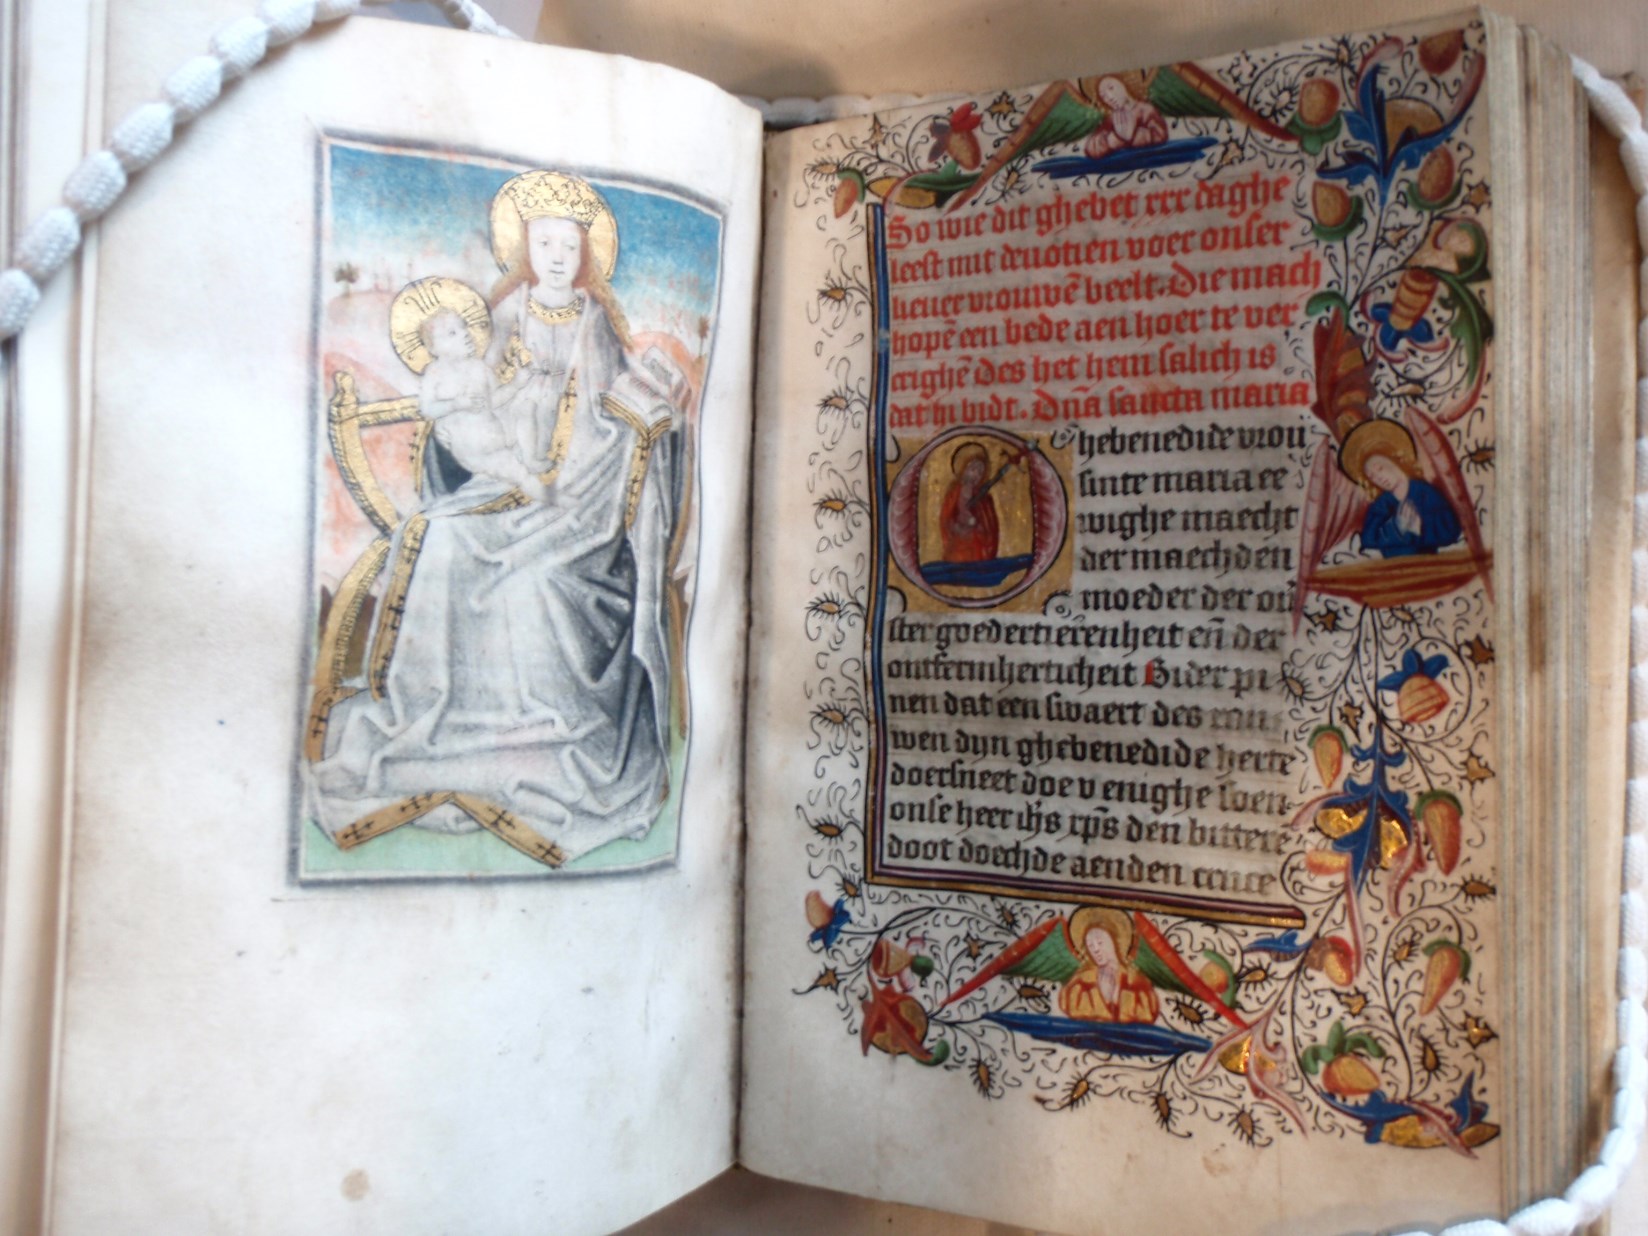 So wie dit ghebet xxx daghe
leest mit deuotien voer onser
lieuer vrouwē beelt. Die mach
hopē een bede aen hoer te ver
crighē des het hem salich is
dat hi bidt. Dn̄a sancta maria
O ghebenedide vrou
sinte maria ee
wighe maecht
der maechden
moeder der ouer
ster goedertierenheit eñ der
ontfermherticheit Bider pi
nen dat een swaert des rou
wen dyn ghebenedide herte
doersneet doe v enighe soen
onse heer ih̄s xp̄s den bitterē
doot doechde aenden cruce